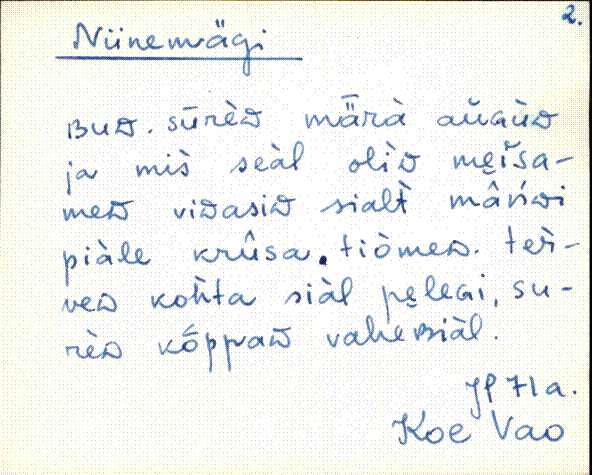 2.
Niinemägi
BUD. sūrèD mǟrà aùGùD
ja mis̀ seàl olìD mẹis̆a-
meD viDasiD sialt̀ mâńDi
piàle krûsa. tiòmeD. ter̀-
veD koh̀ta siàl pẹleGi, su-
rèD kṓppaD vaheBsiàl.
JP 71 a.
Koe Vao